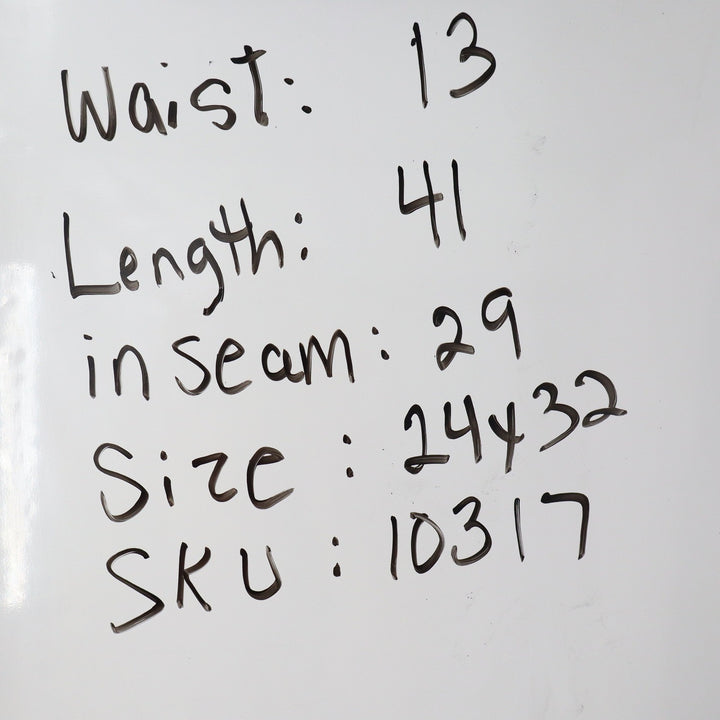 Waist: 13
Length: 41
inseam: 29
Size: 24x32
SKU: 10317